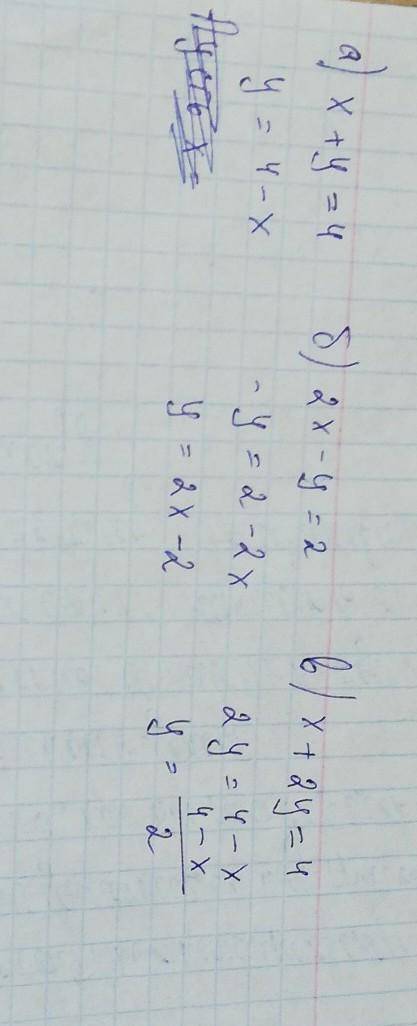 а) x + y = 4
y = 4 - x
б) 2x - y = 2
- y = 2 - 2x
y = 2x - 2
в) x + 2y = 4
2y = 4 - x
y = \frac{4 - x}{2}